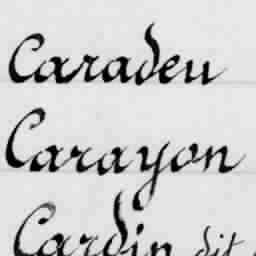 Caradeu
Carayon
Cardin dit